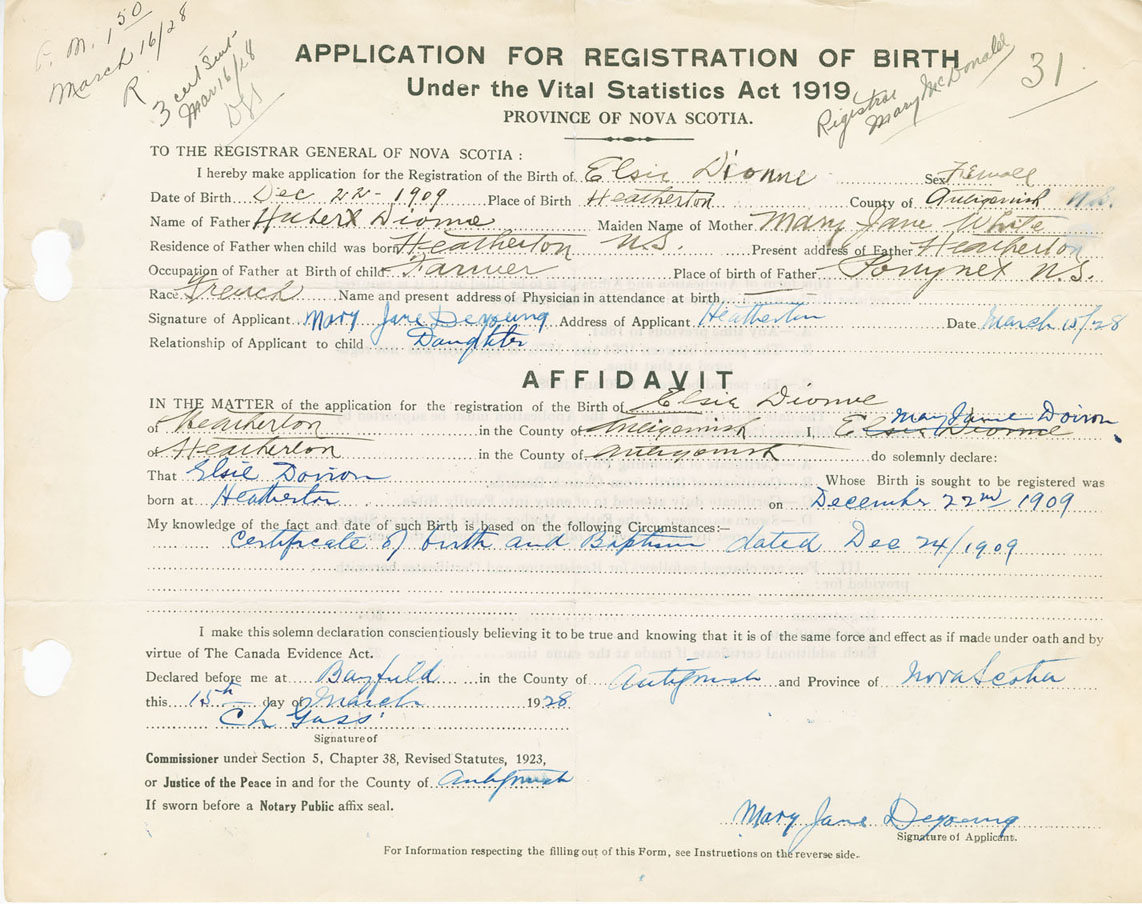 P. M. 1 50
March 16/28
R
3 cent Sent
Mar 16/28
APPLICATION FOR REGISTRATION OF BIRTH
Under the Vital Statistics Act 1919
PROVINCE OF NOVA SCOTIA.
Registrar
Mary McDonald
31
TO THE REGISTRAR GENERAL OF NOVA SCOTIA :
I hereby make application for the Registration of the Birth of Elsie Dionne Sex Femall
Date of Birth Dec 22 - 1909 Place of Birth Heatherton County of Antigonish N.S.
Name of Father Hubert Dionne Maiden Name of Mother Mary Jane White
Residence of Father when child was born Heatherton N.S. Present address of Father Heatherton
Occupation of Father at Birth of child Farmer Place of birth of Father N.S.
Race French Name and present address of Physician in attendance at birth
Signature of Applicant Mary Jane Deyoung Address of Applicant Heatherton Date March 15/28
Relationship of Applicant to child Daughter
AFFIDAVIT
IN THE MATTER of the application for the registration of the Birth of Elsie Dionne
of Heatherton in the County of Antigonish I, Elsie Dionne Mary Jane Doiron,
of Heatherton in the County of Antigonish do solemnly declare:
That Elsie Doiron Whose Birth is sought to be registered was
born at Heatherton on December 22nd 1909
My knowledge of the fact and date of such Birth is based on the following Circumstances:—
Certificate of birth and Baptism dated Dec 24/1909
I make this solemn declaration conscientiously believing it to be true and knowing that it is of the same force and effect as if made under oath and by
virtue of The Canada Evidence Act.
Declared before me at Bayfield in the County of Antigonish and Province of Nova Scotia
this 15th day of March 1928
C h Gass
Signature of
Commissioner under Section 5, Chapter 38, Revised Statutes, 1923,
or Justice of the Peace in and for the County of Antigonish
If sworn before a Notary Public affix seal.
Mary Jane Deyoung
Signature of Applicant.
For Information respecting the filling out of this Form, see Instructions on the reverse side.